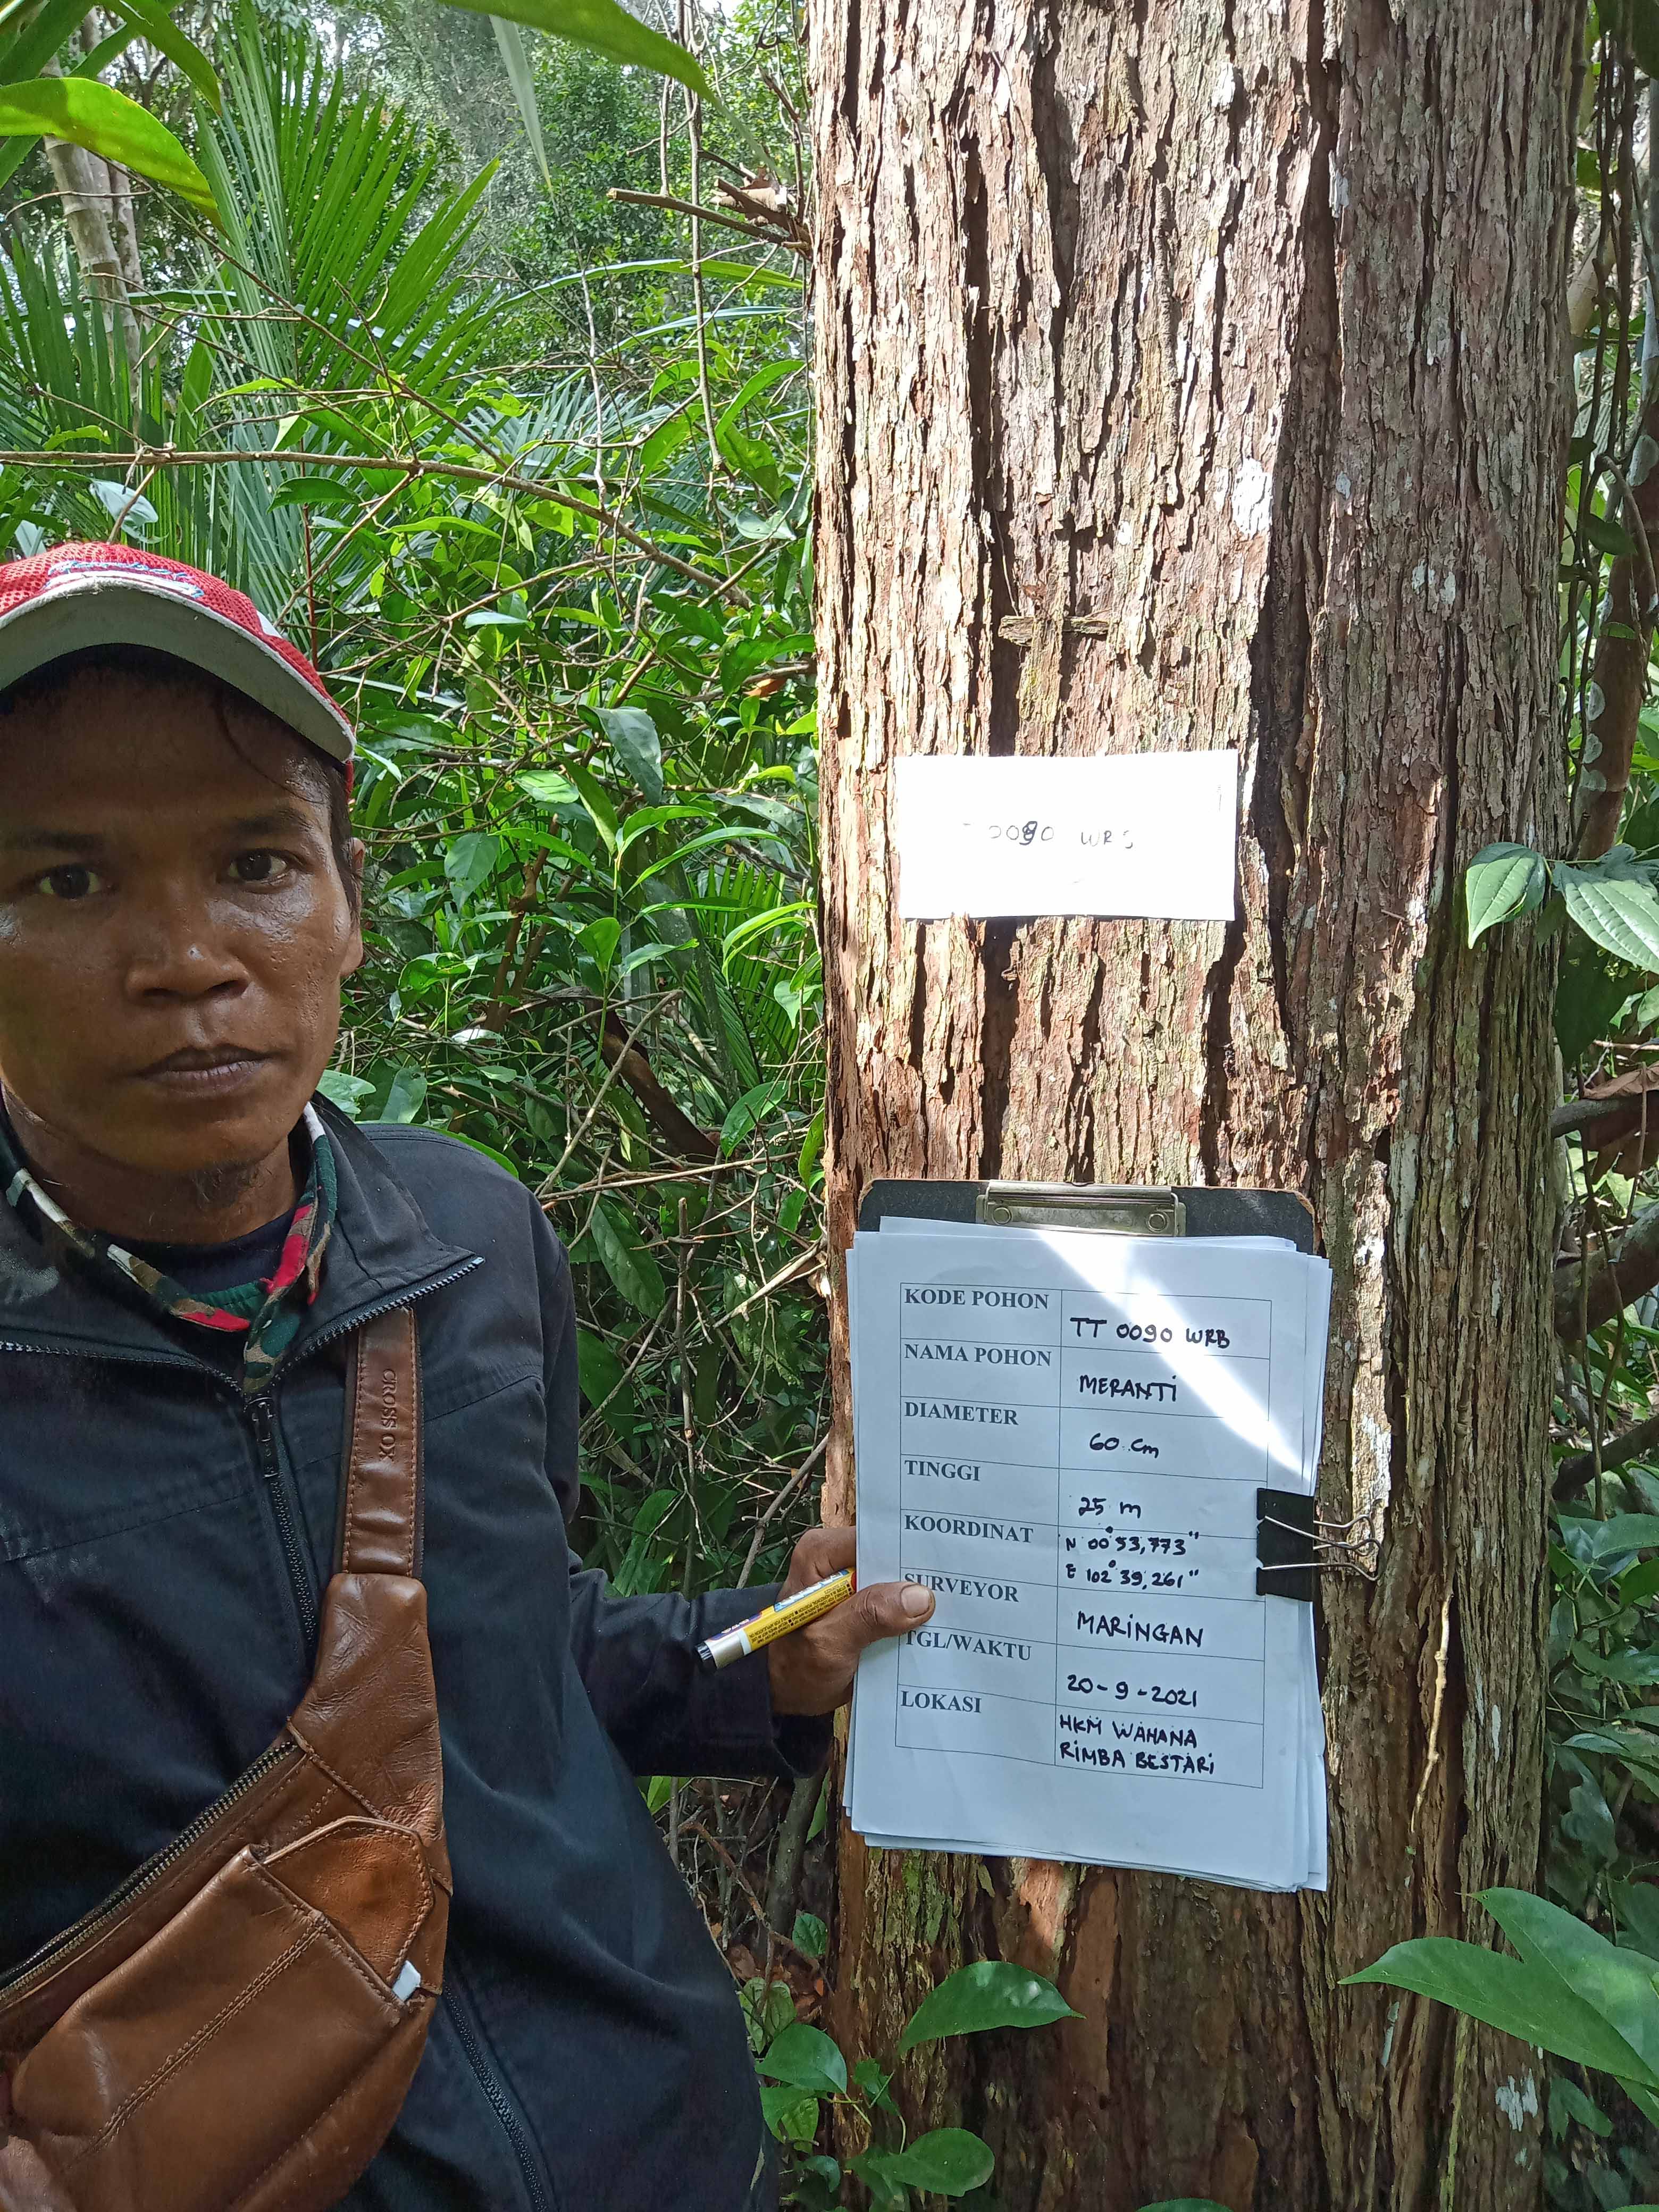 0090 WRB
CROSS OX
KODE POHON
TT 0090 WRB
NAMA POHON
MERANTI
DIAMETER
60 cm
TINGGI
25 m
KOORDINAT
N 00°53,773"
E 102°39,261"
SURVEYOR
MARINGAN
TGL/WAKTU
20-9-2021
LOKASI
HKM WAHANA
RIMBA BESTARI